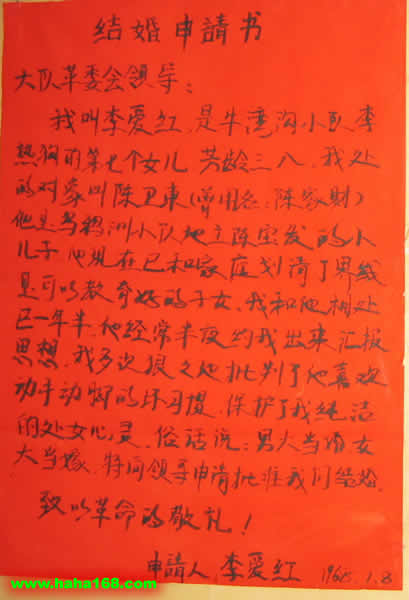 结婚申請书
大队革委会领导：
我叫李爱红，是牛湾沟小队李
热狗的第七个女儿，芳龄三八，我处
的对象叫陈卫東（曾用名：陈家财）
他是乌鸦洲小队地主陈宝发的小
儿子 他現在已和家庭划清了界线
是可以教育好的子女，我和他相处
已一年半，他经常半夜约我出来汇报
思想，我多次狠狠地批判了他喜欢
动手动脚的坏习惯，保护了我纯洁
的处女心灵，俗话说：男大当婚女
大当嫁，特向领导申请批准我们结婚，
致以革命的敬礼！
申請人 李爱红 1965.1.8
www.haha168.com